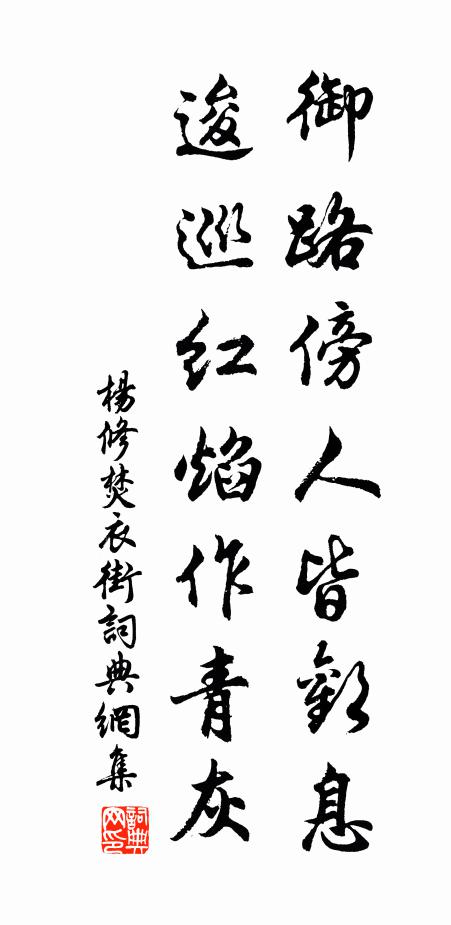 御路傍人皆歎息
逡巡紅焰作青灰
楊修焚衣街詞典網集
詞典网印